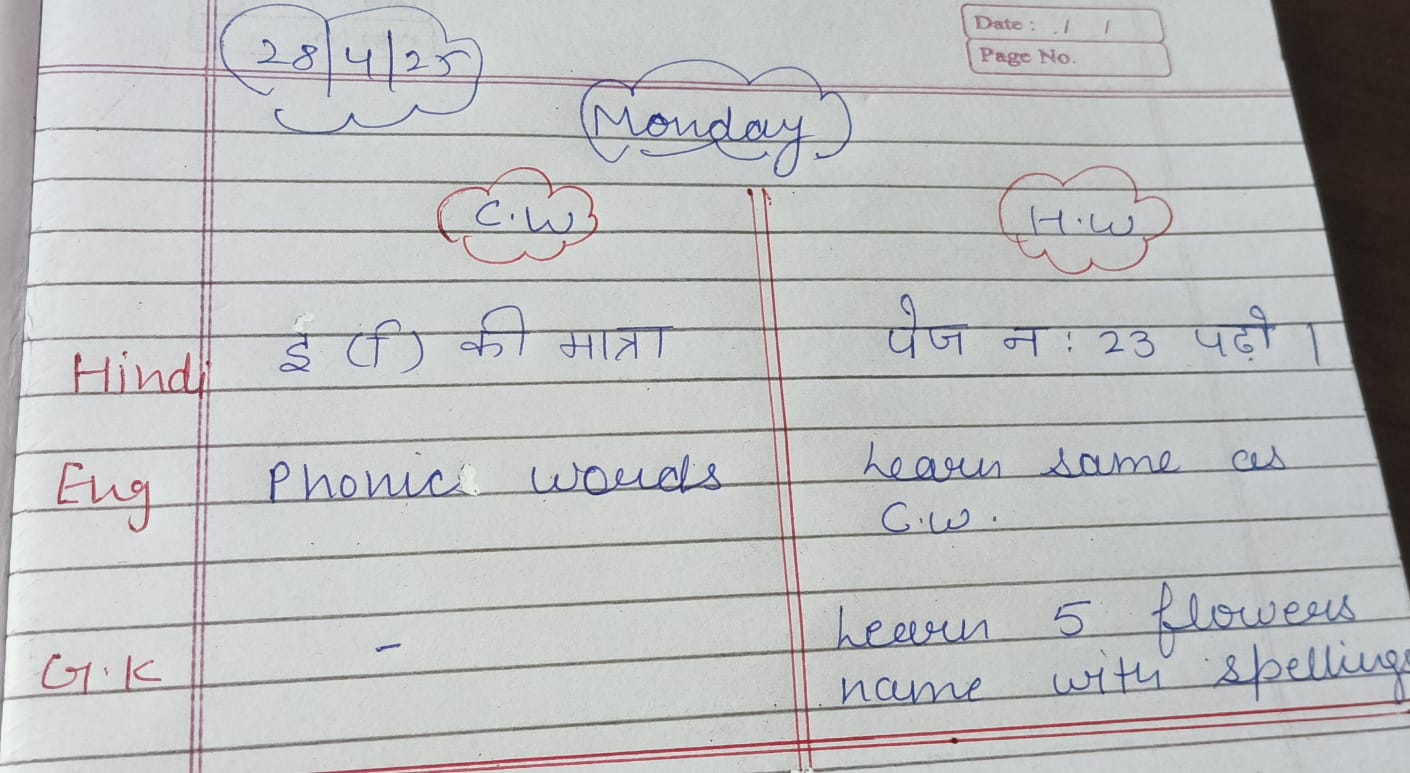 Date : / /
Page No.
28/4/25
Monday
C.W H.W
Hindi इ (ि) की मात्रा पेज न : 23 पढ़ो ।
Eng Phonic words Learn same as
C.W.
G.K - Learn 5 flowers
name with spellings